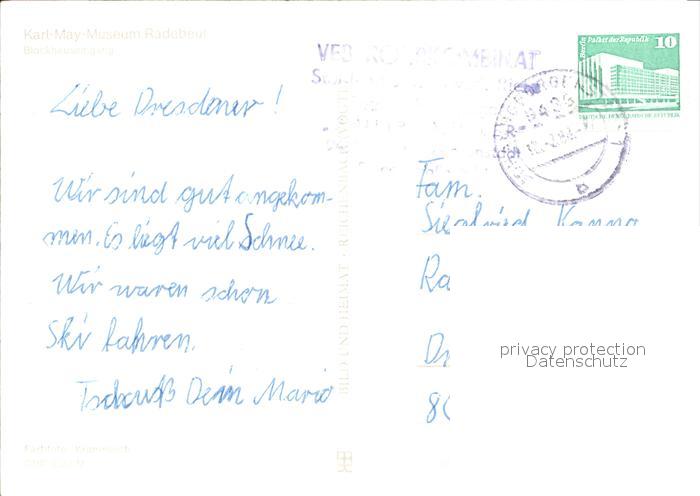 Karl-May-Museum Radebeul
Blockhauseingang
Liebe Dresdener!
Wir sind gut angekom-
men. Es liegt viel Schnee.
Wir waren schon
Ski fahren.
Tschüß Dein Mario
BILD UND HEIMAT · REICHENBACH (VOGTL)
VEB
10
Berlin Palast der Republik
DEUTSCHE DEMOKRATISCHE REPUBLIK
Fam.
Siegfried
Ra
Dr
80
privacy protection
Datenschutz